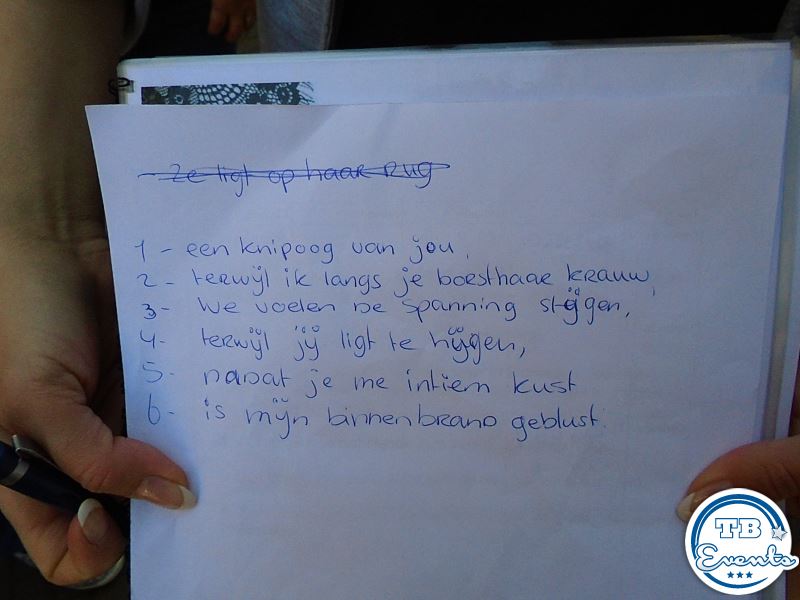 - Ze ligt op haar Rug
1 - een knipoog van jou,
2 - terwijl ik langs je borsthaar krauw,
3 - We voelen de spanning stijgen,
4 - terwijl jij ligt te hijgen,
5 - nadat je me intiem kust
6 - is mijn binnenbrand geblust.
TB
Events